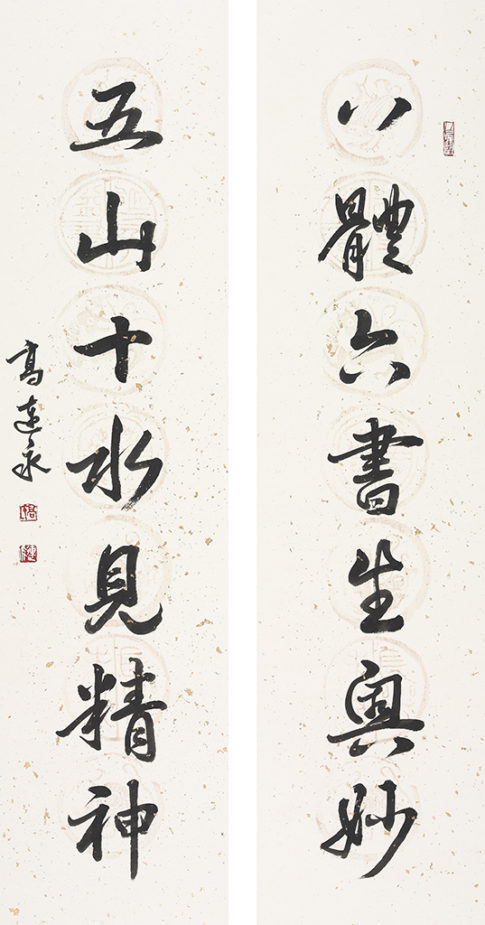 八體六書生奧妙
五山十水見精神
高連永